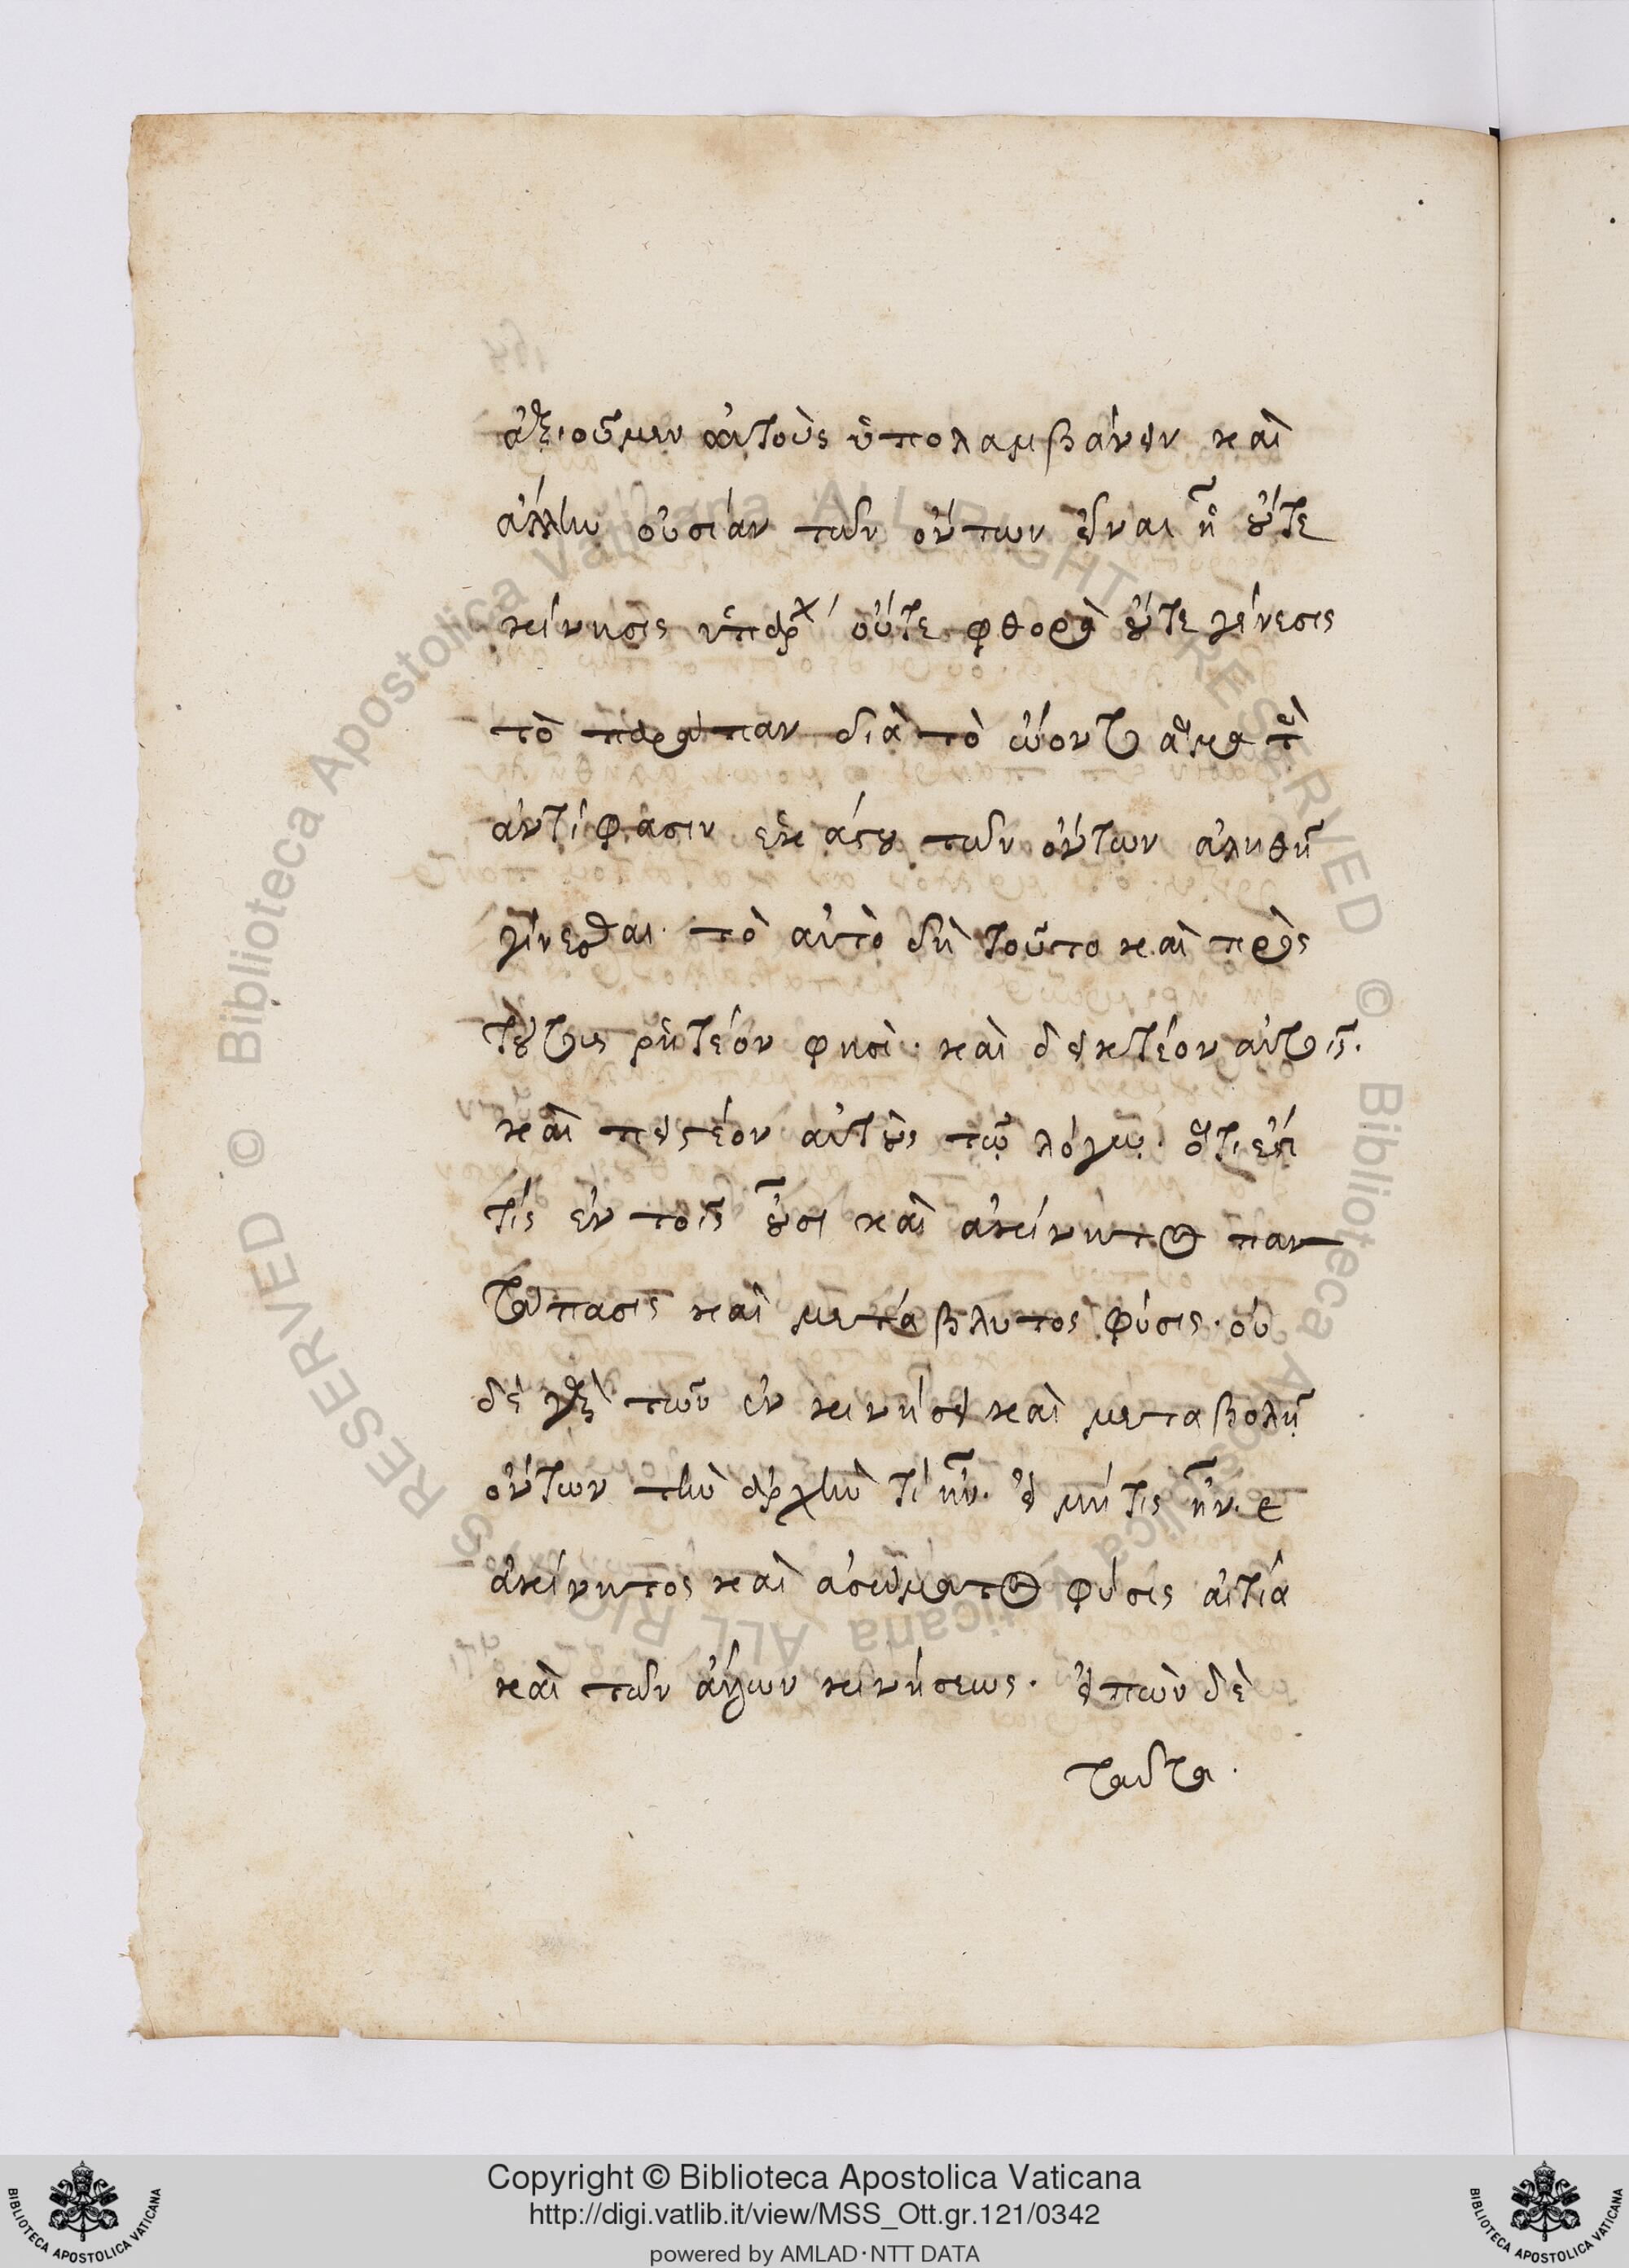 ἀξιοῦμεν αὐτοὺς ὑπολαμβάνειν καὶ
ἄλλην οὐσίαν τῶν ὄντων εἶναι ᾗ οὔτε
κίνησις ὑπάρχ οὔτε φθορὰ οὔτε γένεσις
τὸ παράπαν διὰ τὸ ὤοντο ἅμα τὴν
ἀντίφασιν ἑκάστου τῶν ὄντων ἀληθῆ
γίνεσθαι· τὸ αὐτὸ δὴ τοῦτο καὶ πρὸς
τούτοις ῥητέον φησὶ· καὶ δεικτέον αὐτοῖς·
καὶ πειστέον αὐτοὺς τῷ λόγῳ· ὅτι ἐστί
τίς ἐν τοῖς οὖσι καὶ ἀκίνητος παν
τάπασις καὶ μετάβλητος φύσις· οὐ
δὲ γὰρ τῶν ἐν κινήσει καὶ μεταβολῇ
ὄντων τὴν ἀρχὴν τί ἦν· εἰ μή τις ἦν·
ἀκίνητος καὶ ἀσώματος φύσις αἰτία
καὶ τῶν ἄλλων κινήσεως· εἰπὼν δὲ
ταῦτα·
© Biblioteca Apostolica Vaticana ALL RIGHTS RESERVED © Biblioteca Apostolica Vaticana ALL RIGHTS RESERVED
Copyright © Biblioteca Apostolica Vaticana
http://digi.vatlib.it/view/MSS_Ott.gr.121/0342
powered by AMLAD·NTT DATA
BIBLIOTECA APOSTOLICA VATICANA
BIBLIOTECA APOSTOLICA VATICANA